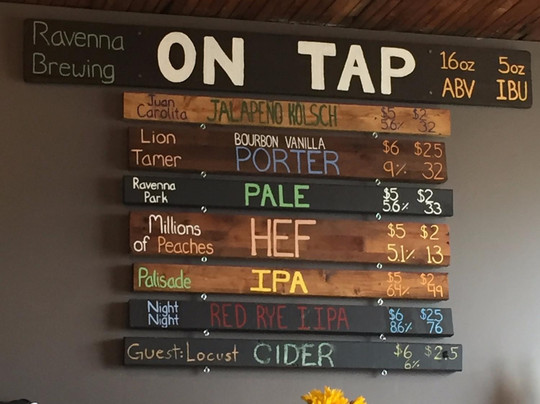 Ravenna
Brewing
ON TAP
16oz 5oz
ABV IBU
Juan
Carolita
JALAPENO KOLSCH
$5 $2
5.6% 32
Lion
Tamer
BOURBON VANILLA
PORTER
$6 $2.5
9% 32
Ravenna
Park
PALE
$5 $2
5.6% 33
Millions
of Peaches
HEF
$5 $2
5.1% 13
Palisade
IPA
$5 $2
6.4% 49
Night
Night
RED RYE IIPA
$6 $25
8.6% 76
Guest: Locust
CIDER
$6 $2.5
6%